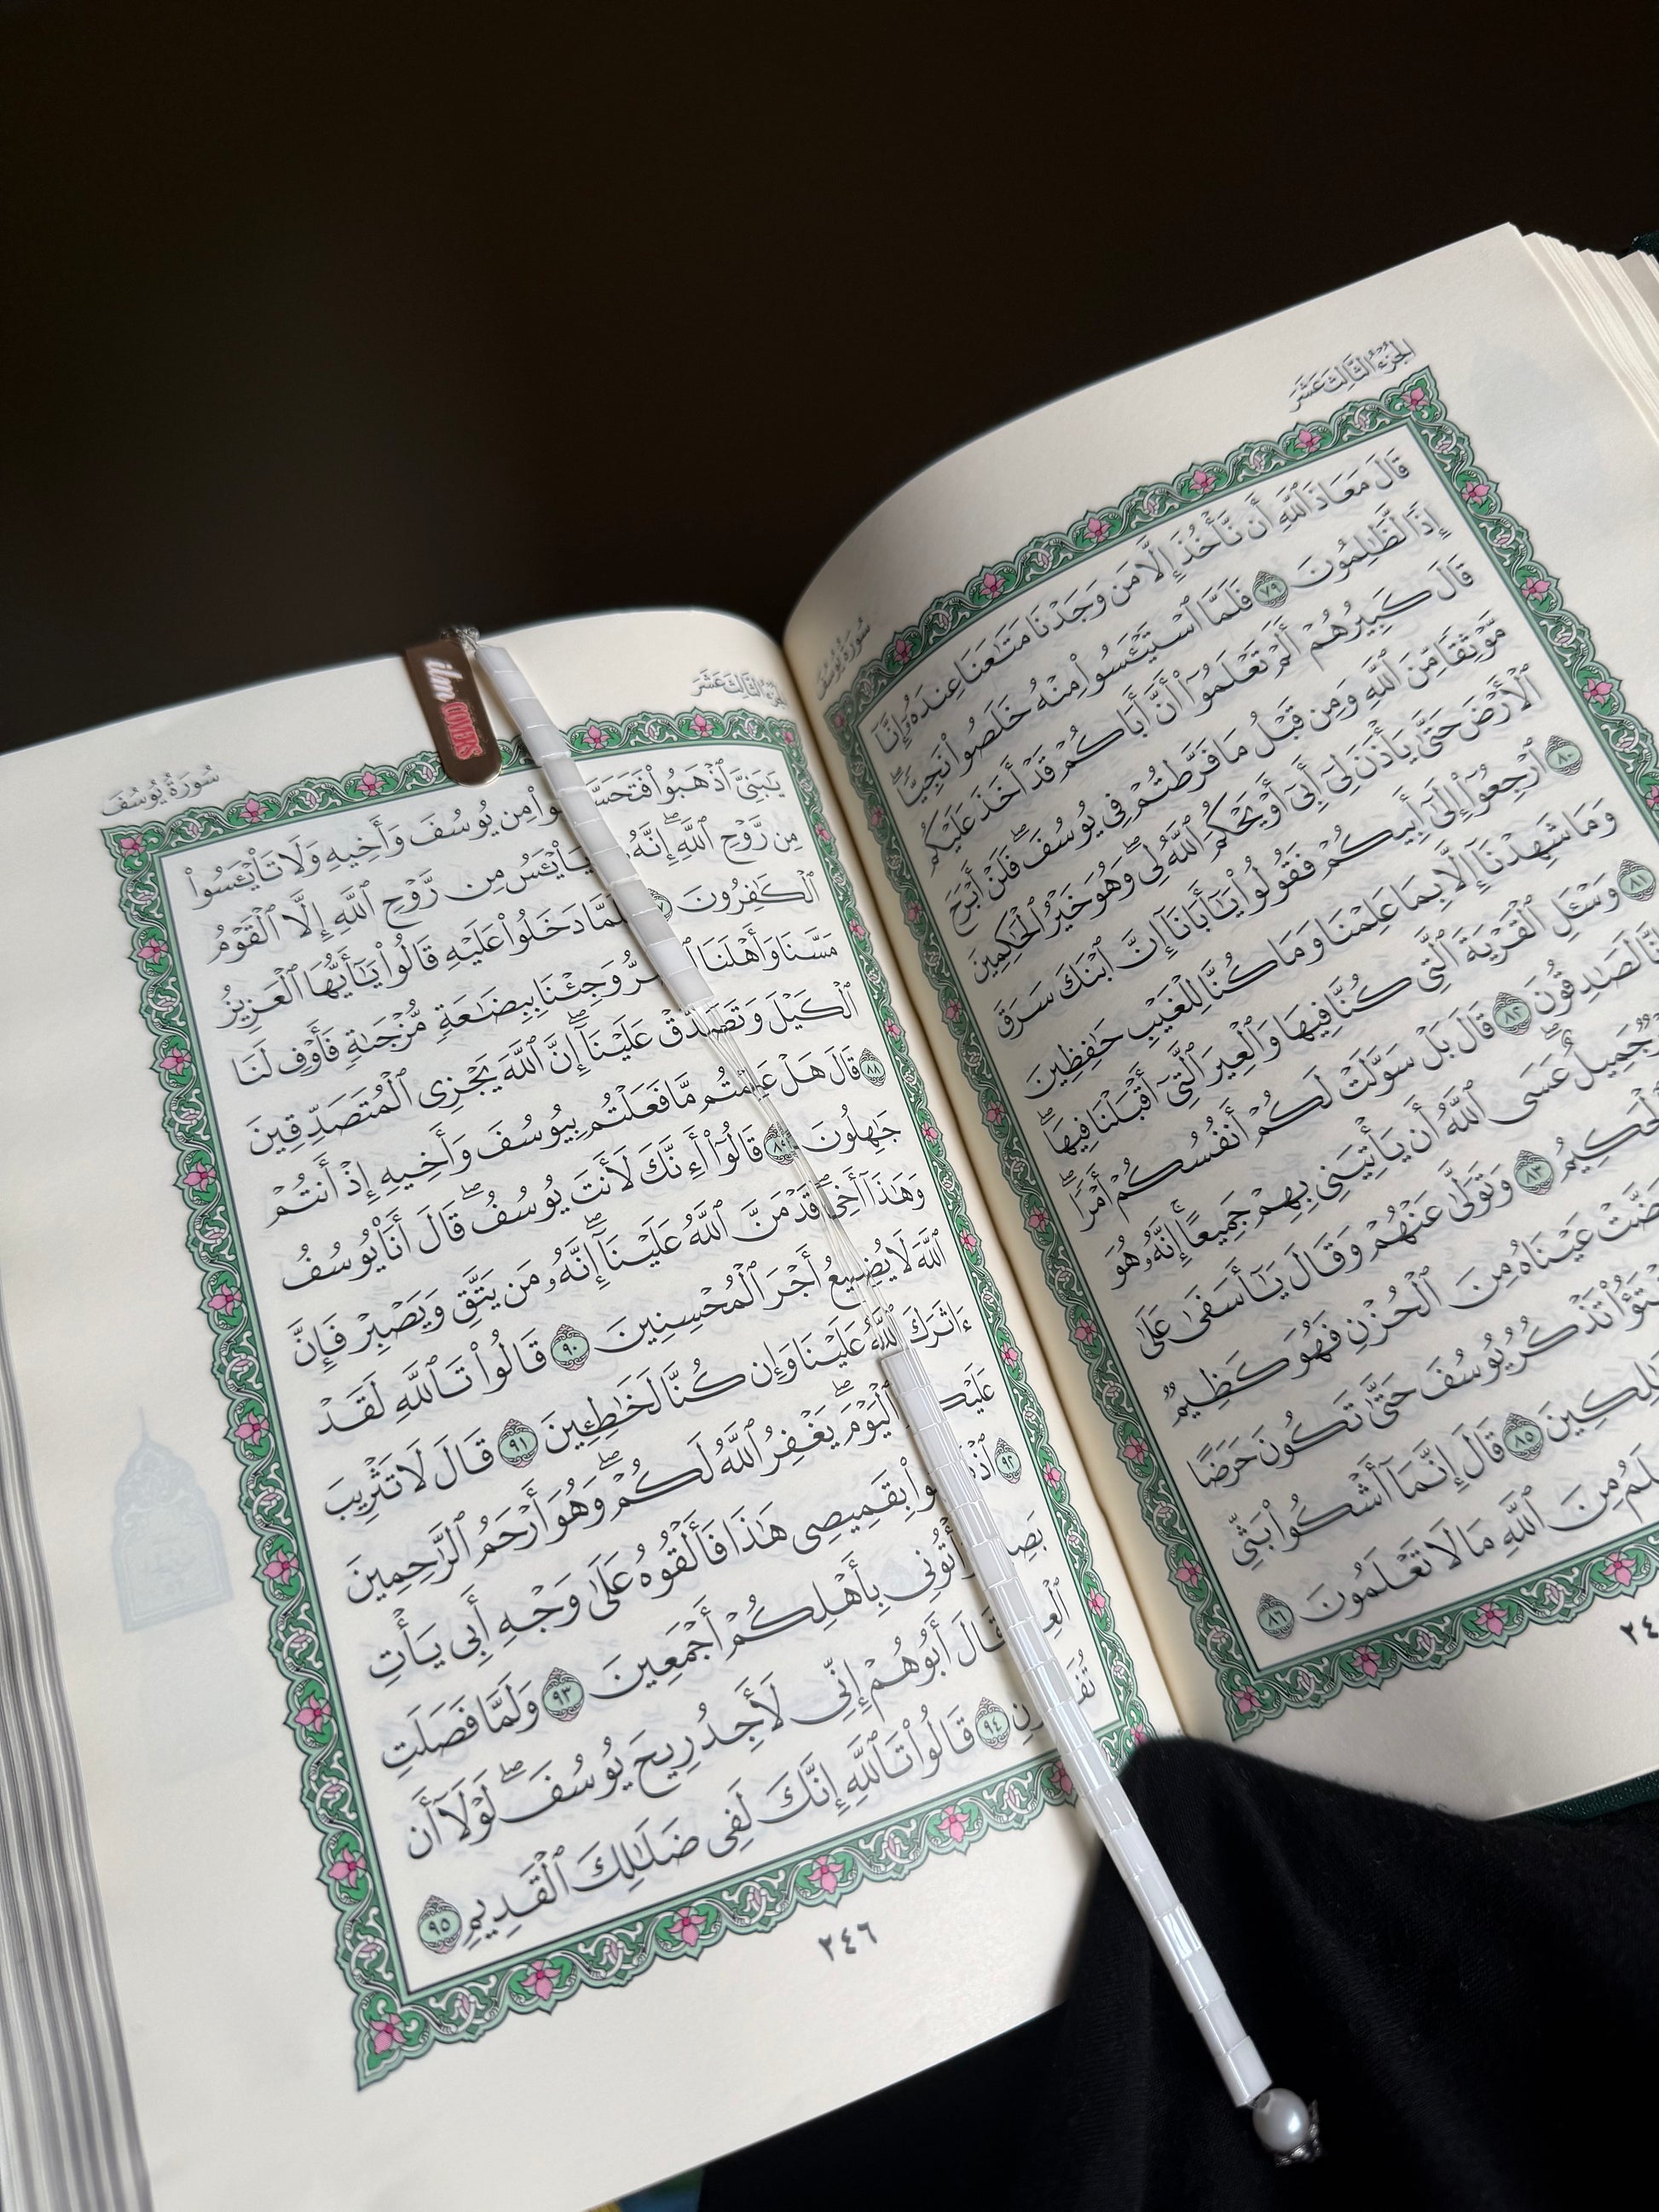 الجزء الثالث عشر
سورة يوسف
قَالَ مَعَاذَ ٱللَّهِ أَن نَّأْخُذَ إِلَّا مَن وَجَدْنَا مَتَٰعَنَا عِندَهُۥٓ إِنَّآ
إِذًا لَّظَٰلِمُونَ ٧٩ فَلَمَّا ٱسْتَيْـَٔسُوا۟ مِنْهُ خَلَصُوا۟ نَجِيًّا ۖ
قَالَ كَبِيرُهُمْ أَلَمْ تَعْلَمُوٓا۟ أَنَّ أَبَاكُمْ قَدْ أَخَذَ عَلَيْكُم
مَّوْثِقًا مِّنَ ٱللَّهِ وَمِن قَبْلُ مَا فَرَّطتُمْ فِى يُوسُفَ ۖ فَلَنْ أَبْرَحَ
ٱلْأَرْضَ حَتَّىٰ يَأْذَنَ لِىٓ أَبِىٓ أَوْ يَحْكُمَ ٱللَّهُ لِى ۖ وَهُوَ خَيْرُ ٱلْحَٰكِمِينَ
٨٠ ٱرْجِعُوٓا۟ إِلَىٰٓ أَبِيكُمْ فَقُولُوا۟ يَٰٓأَبَانَآ إِنَّ ٱبْنَكَ سَرَقَ
وَمَا شَهِدْنَآ إِلَّا بِمَا عَلِمْنَا وَمَا كُنَّا لِلْغَيْبِ حَٰفِظِينَ
٨١ وَسْـَٔلِ ٱلْقَرْيَةَ ٱلَّتِى كُنَّا فِيهَا وَٱلْعِيرَ ٱلَّتِىٓ أَقْبَلْنَا فِيهَا ۖ
لَصَٰدِقُونَ ٨٢ قَالَ بَلْ سَوَّلَتْ لَكُمْ أَنفُسُكُمْ أَمْرًا ۖ
جَمِيلٌ ۖ عَسَى ٱللَّهُ أَن يَأْتِيَنِى بِهِمْ جَمِيعًا ۚ إِنَّهُۥ هُوَ
ٱلْحَكِيمُ ٨٣ وَتَوَلَّىٰ عَنْهُمْ وَقَالَ يَٰٓأَسَفَىٰ عَلَىٰ
عَيْنَاهُ مِنَ ٱلْحُزْنِ فَهُوَ كَظِيمٌ
تَذْكُرُ يُوسُفَ حَتَّىٰ تَكُونَ حَرَضًا
٨٥ قَالَ إِنَّمَآ أَشْكُوا۟ بَثِّى
مِنَ ٱللَّهِ مَا لَا تَعْلَمُونَ ٨٦
الجزء الثالث عشر
سورة يوسف
ilm COVERS
يَٰبَنِىَّ ٱذْهَبُوا۟ مِن يُوسُفَ وَأَخِيهِ وَلَا تَا۟يْـَٔسُوا۟
مِن رَّوْحِ ٱللَّهِ ۖ إِنَّهُۥ يَا۟يْـَٔسُ مِن رَّوْحِ ٱللَّهِ إِلَّا ٱلْقَوْمُ
ٱلْكَٰفِرُونَ دَخَلُوا۟ عَلَيْهِ قَالُوا۟ يَٰٓأَيُّهَا ٱلْعَزِيزُ
مَسَّنَا وَأَهْلَنَا وَجِئْنَا بِبِضَٰعَةٍ مُّزْجَىٰةٍ فَأَوْفِ لَنَا
ٱلْكَيْلَ وَتَصَدَّقْ عَلَيْنَآ ۖ إِنَّ ٱللَّهَ يَجْزِى ٱلْمُتَصَدِّقِينَ
٨٨ قَالَ هَلْ عَلِمْتُم مَّا فَعَلْتُم بِيُوسُفَ وَأَخِيهِ إِذْ أَنتُمْ
جَٰهِلُونَ ٨٩ قَالُوٓا۟ أَءِنَّكَ لَأَنتَ يُوسُفُ ۖ قَالَ أَنَا۠ يُوسُفُ
وَهَٰذَآ أَخِى ۖ قَدْ مَنَّ ٱللَّهُ عَلَيْنَآ ۖ إِنَّهُۥ مَن يَتَّقِ وَيَصْبِرْ فَإِنَّ
ٱللَّهَ لَا يُضِيعُ أَجْرَ ٱلْمُحْسِنِينَ ٩٠ قَالُوا۟ تَٱللَّهِ لَقَدْ
ءَاثَرَكَ ٱللَّهُ عَلَيْنَا وَإِن كُنَّا لَخَٰطِـِٔينَ ٩١ قَالَ لَا تَثْرِيبَ
ٱلْيَوْمَ ۖ يَغْفِرُ ٱللَّهُ لَكُمْ ۖ وَهُوَ أَرْحَمُ ٱلرَّٰحِمِينَ
٩٢ بِقَمِيصِى هَٰذَا فَأَلْقُوهُ عَلَىٰ وَجْهِ أَبِى يَأْتِ
بِأَهْلِكُمْ أَجْمَعِينَ ٩٣ وَلَمَّا فَصَلَتِ
قَالَ أَبُوهُمْ إِنِّى لَأَجِدُ رِيحَ يُوسُفَ ۖ لَوْلَآ أَن
٩٤ قَالُوا۟ تَٱللَّهِ إِنَّكَ لَفِى ضَلَٰلِكَ ٱلْقَدِيمِ ٩٥
٢٤٦